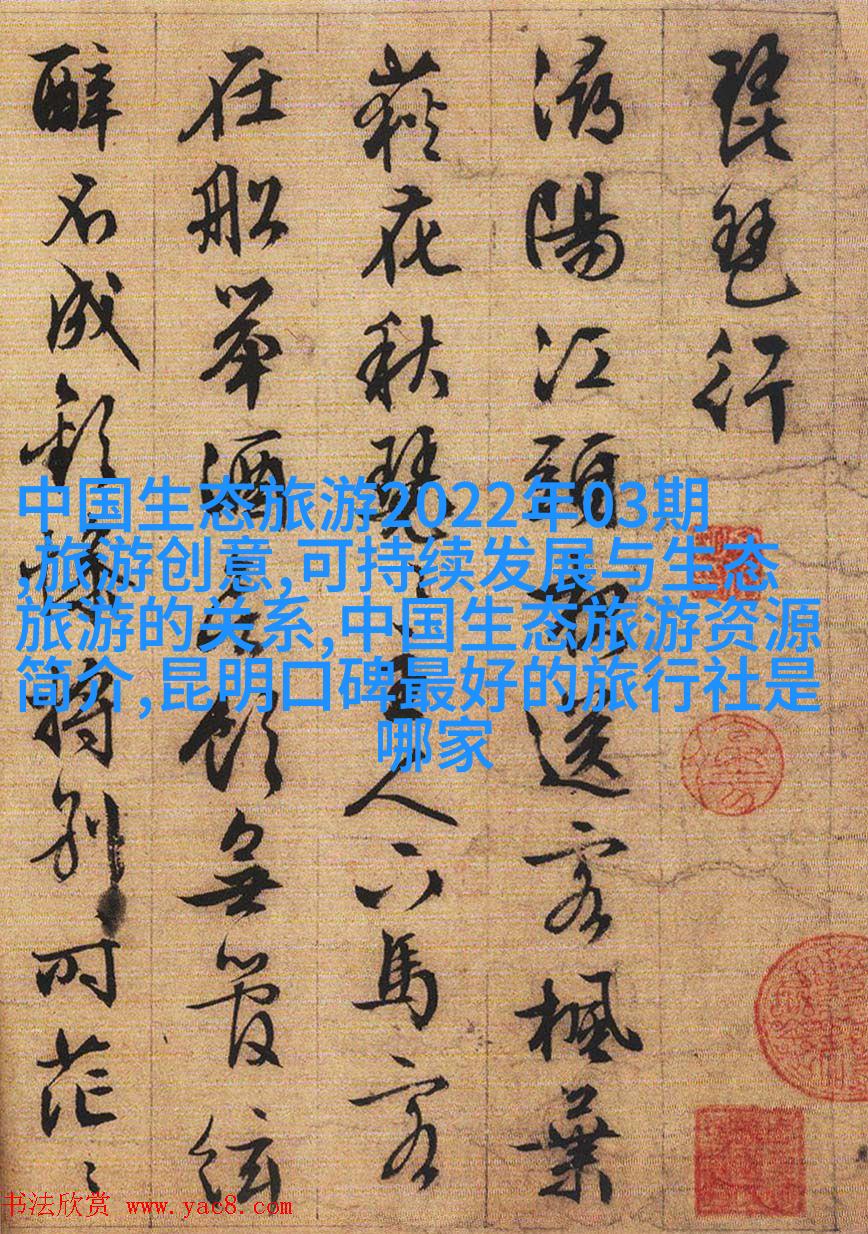 琵琶行
潯陽江頭夜送客楓葉
荻花秋瑟々主人下馬客
在船舉酒欲飲無管絃
醉不成歡慘將別时茫々
中国生态旅游2022年03期
,旅游创意,可持续发展与生态
旅游的关系,中国生态旅游资源
简介,昆明口碑最好的旅行社是
哪家
书法欣赏 www.yac8.com